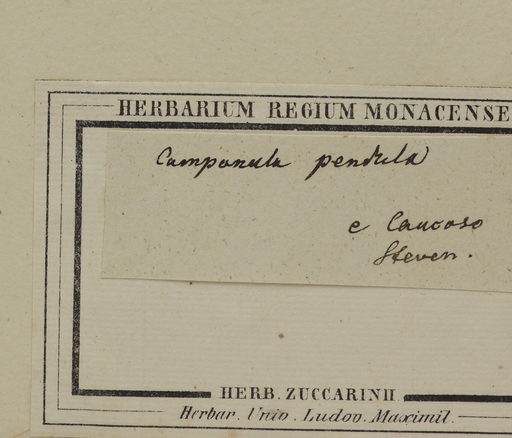 HERBARIUM REGIUM MONACENSE
Campanula pendula
e Caucaso
Steven.
HERB. ZUCCARINII.
Herbar. Univ. Ludov. Maximil.